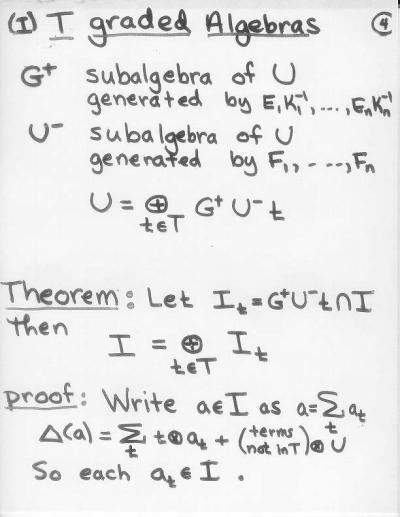 (I) T graded Algebras ④
G⁺ subalgebra of U
generated by E₁K₁⁻¹, ..., EₙKₙ⁻¹
U⁻ subalgebra of U
generated by F₁, - ..., Fₙ
U = ⊕ G⁺ U⁻ t
t∈T
Theorem: Let I_t = G⁺U⁻t ∩ I
then
I = ⊕ I_t
t∈T
proof: Write a∈I as a = Σ a_t
t
Δ(a) = Σ t⊗a_t + (terms not in T)⊗ U
t
So each a_t ∈ I .